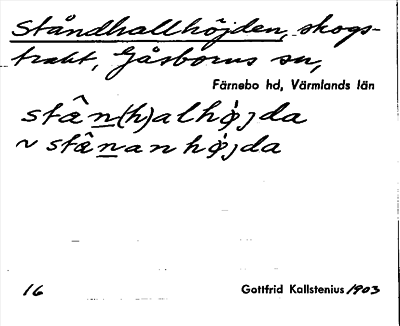 Ståndhallhöjden, skogs-
trakt, Gåsborns sn,
Färnebo hd, Värmlands län
stân(h)alhø̀jda
~ stânanhø̀jda
16
Gottfrid Kallstenius 1903